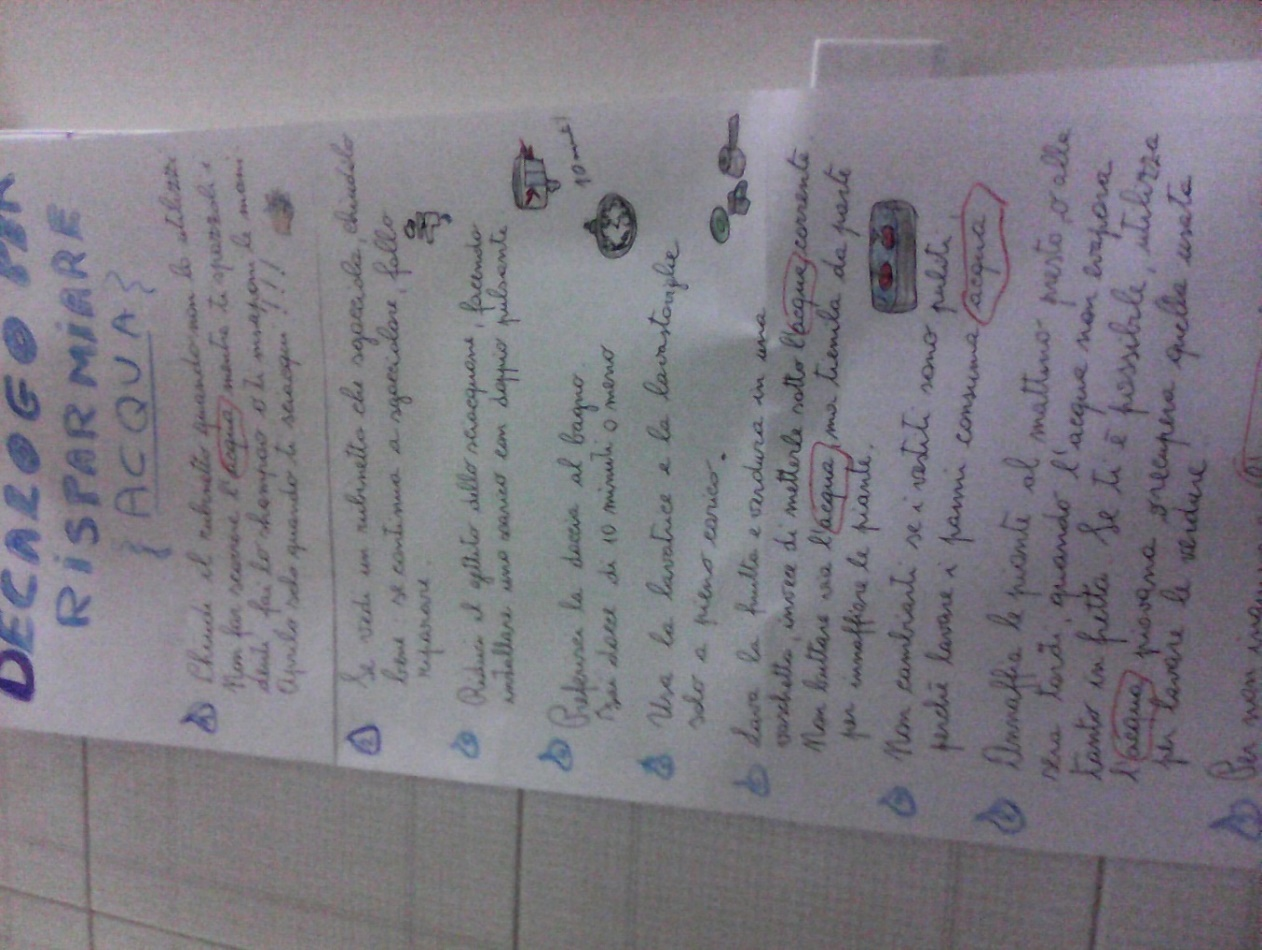 DECALOGO PER
RISPARMIARE
{ACQUA}
Chiudi il rubinetto quando non lo utilizzi
Non far scorrere l'acqua mentre ti spazzoli i
denti fai lo shampoo o ti insaponi le mani.
Aprilo solo quando ti sciacqui!!!
Se vedi un rubinetto che sgocciola, chiudilo
bene: se continua a sgocciolare, fallo
riparare.
Riduci il getto dello sciacquone, facendo
installare uno scarico con doppio pulsante
Preferisci la doccia al bagno.
Fai docce di 10 minuti o meno
10 min!
Usa la lavatrice e la lavastoviglie
solo a pieno carico.
Lava la frutta e verdura in una
vaschetta, invece di metterle sotto l'acqua corrente.
Non buttare via l'acqua, ma tienila da parte
per innaffiare le piante.
Non cambiarti se i vestiti sono puliti,
perché lavare i panni consuma acqua
Annaffia le piante al mattino presto o alla
sera tardi, quando l'acqua non evapora
tanto in fretta. Se ti è possibile, utilizza
l'acqua piovana o recupera quella usata
per lavare le verdure
Per non